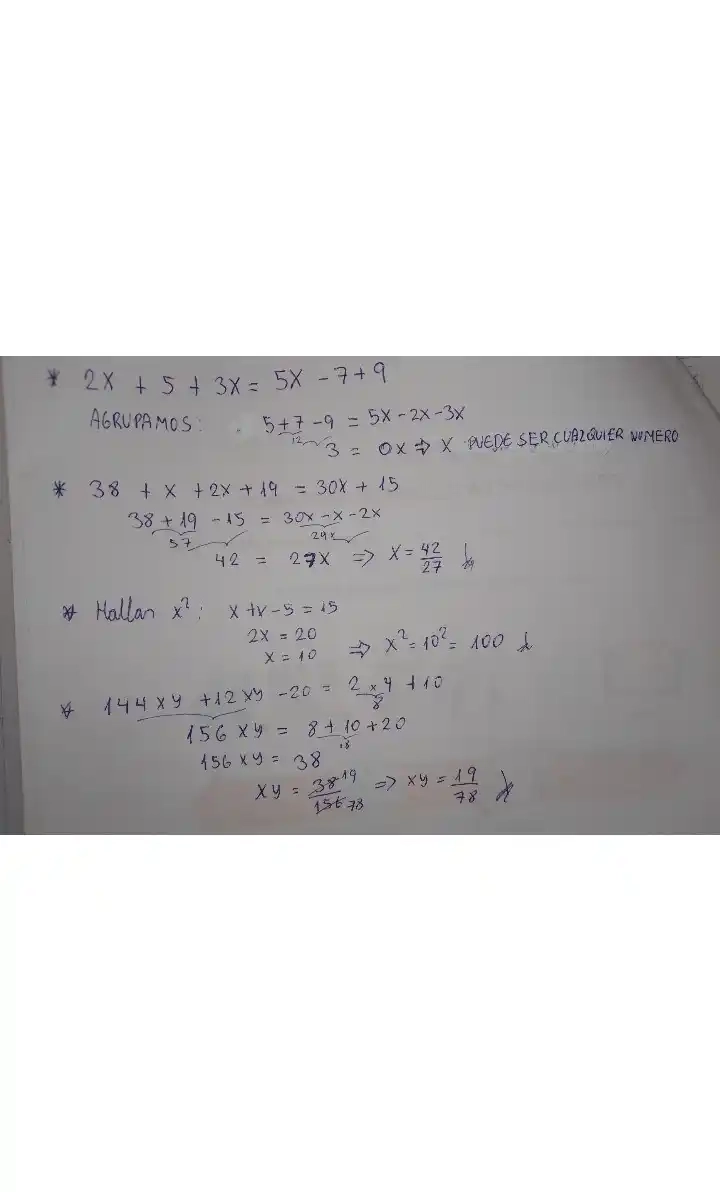 * 2X + 5 + 3X = 5X - 7 + 9
AGRUPAMOS: 5 + 7 - 9 = 5X - 2X - 3X
12
3 = 0X ⇒ X PUEDE SER CUALQUIER NUMERO
* 38 + X + 2X + 19 = 30X + 15
38 + 19 - 15 = 30X - X - 2X
57 29X
42 = 27X ⇒ X = 42/27
* Hallar x²: x + x - 5 = 15
2X = 20
X = 10 ⇒ X² = 10² = 100
* 144XY + 12XY - 20 = 2 x 4 + 10
8
156 XY = 8 + 10 + 20
18
156 XY = 38
XY = 38 19/156 78 ⇒ XY = 19/78